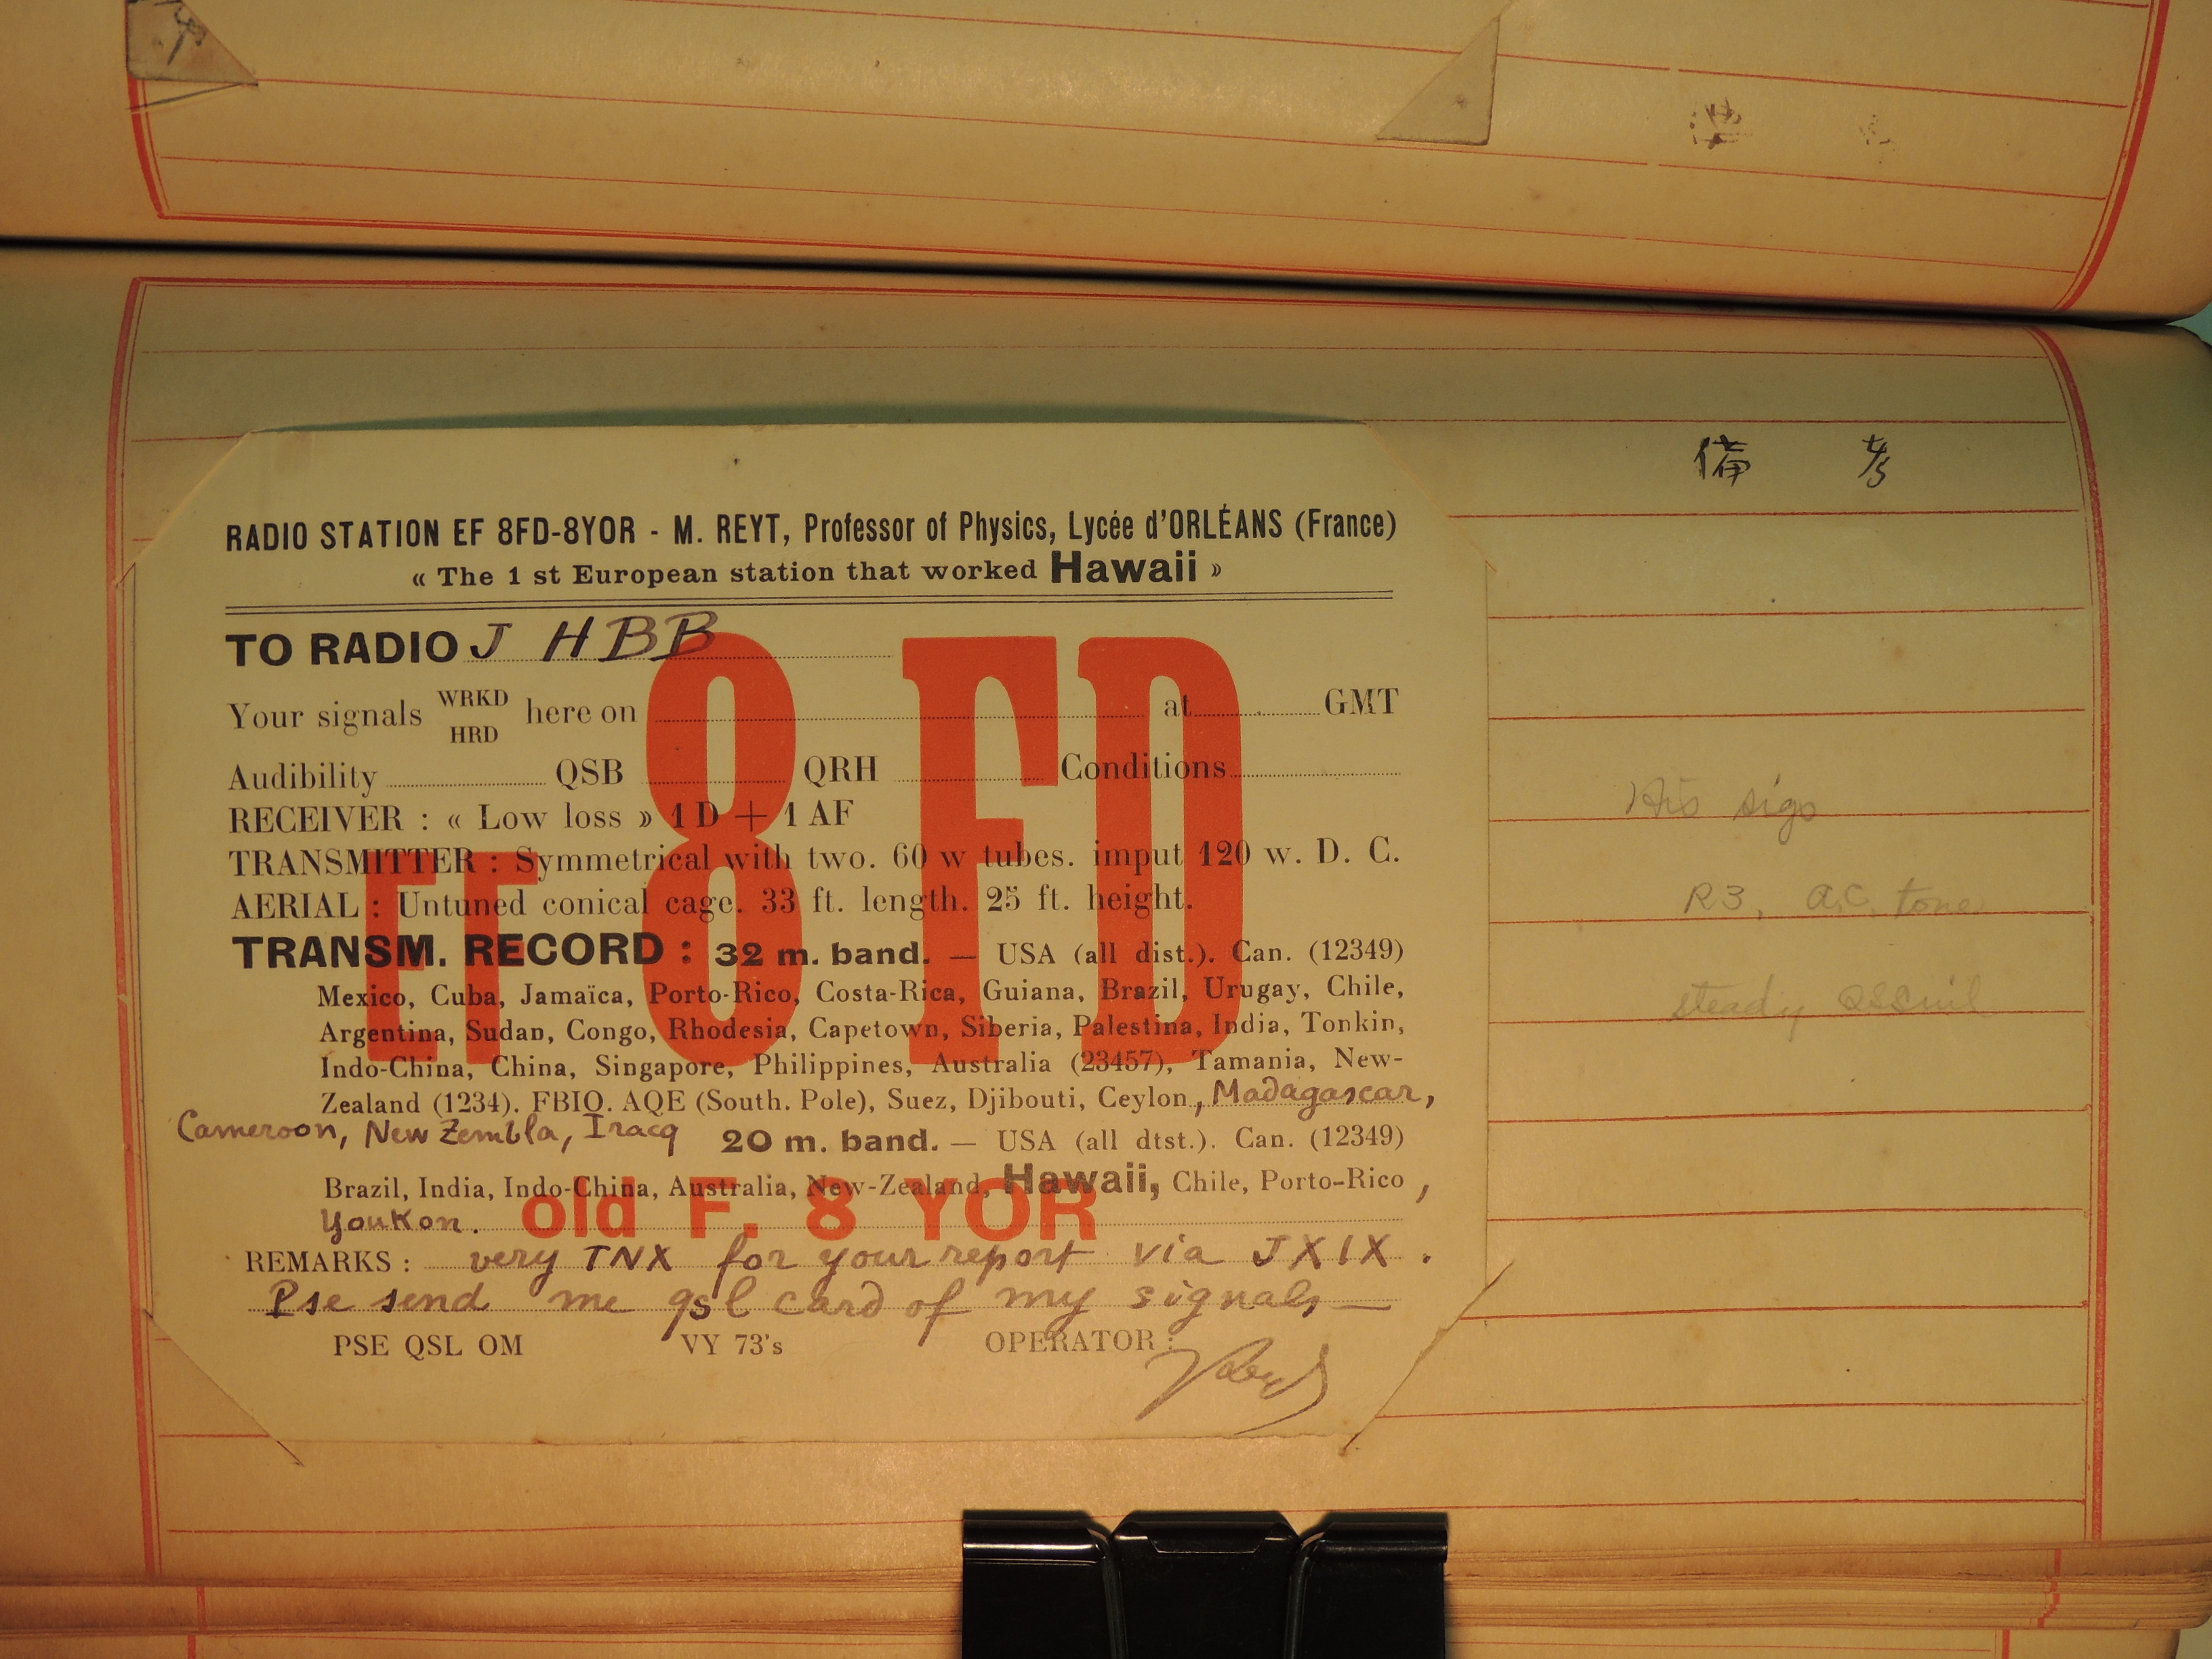 備 考
RADIO STATION EF 8FD-8YOR - M. REYT, Professor of Physics, Lycée d'ORLÉANS (France)
« The 1 st European station that worked Hawaii »
TO RADIO J HBB
Your signals WRKD HRD here on at GMT
Audibility QSB QRH Conditions
RECEIVER : « Low loss » 1 D + 1 AF
TRANSMITTER : Symmetrical with two. 60 w tubes. imput 120 w. D. C.
AERIAL : Untuned conical cage. 33 ft. length. 25 ft. height.
TRANSM. RECORD : 32 m. band. — USA (all dist.). Can. (12349)
Mexico, Cuba, Jamaïca, Porto-Rico, Costa-Rica, Guiana, Brazil, Urugay, Chile,
Argentina, Sudan, Congo, Rhodesia, Capetown, Siberia, Palestina, India, Tonkin,
Indo-China, China, Singapore, Philippines, Australia (23457), Tamania, New-
Zealand (1234). FBIO. AQE (South. Pole), Suez, Djibouti, Ceylon, Madagascar,
Cameroon, New Zembla, Iracq 20 m. band. — USA (all dtst.). Can. (12349)
Brazil, India, Indo-China, Australia, New-Zealand, Hawaii, Chile, Porto-Rico,
Youkon.
REMARKS : very TNX for your report via JXIX.
Pse send me qsl card of my signals —
PSE QSL OM VY 73's OPERATOR :
EF 8 FD
old F. 8 YOR
His sigs
R3, a.c. tone
steady QSSnil